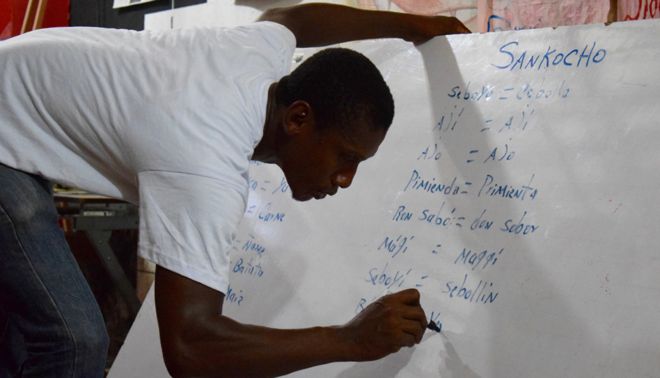 SANKOCHO
Seboyu = Cebolla
Ají = Ají
AJo = AJo
Pimienda = Pimienta
Ron Sabó = don Sabor
Mági = Maggi
Seboyí = Sebollin
= Carne
= Ñame
Batata
Maiz